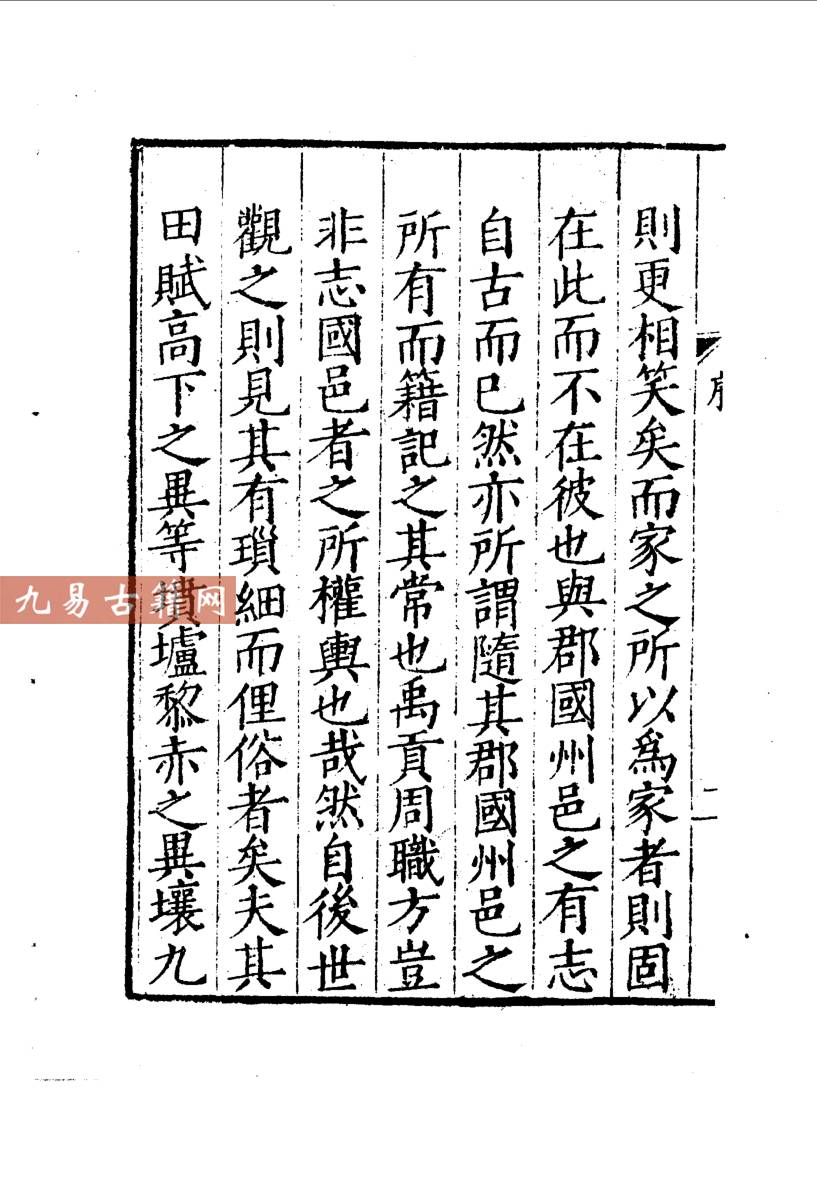 序
二
則更相笑矣而家之所以爲家者則固
在此而不在彼也與郡國州邑之有志
自古而已然亦所謂隨其郡國州邑之
所有而籍記之其常也禹貢周職方豈
非志國邑者之所權輿也哉然自後世
觀之則見其有瑣細而俚俗者矣夫其
田賦高下之異等墳壚黎赤之異壤九
九易古籍网